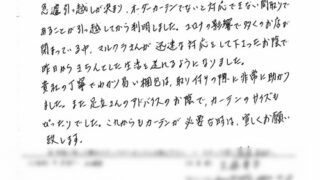 急遽引っ越しが決まり、オーダーカーテンでないと対応できない間取りで
あることが引っ越してから判明しました。コロナの影響で多くのお店が
閉まっている中、スルクラさんが迅速な対応をして下さったお陰で
昨日からきちんとした生活を送れるようになりました。
貴社の丁寧で分かり易い梱包は、取り付けの際に非常に助かり
ました。また足立さんのアドバイスのお陰で、カーテンのサイズも
ぴったりでした。これからもカーテンが必要な時は、宜しくお願い
致します。